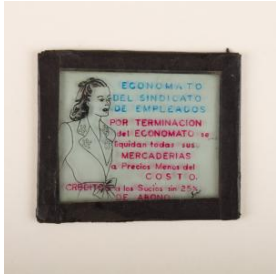 ECONOMATO
DEL SINDICATO
DE EMPLEADOS
POR TERMINACION
del ECONOMATO se
liquidan todas sus
MERCADERIAS
a Precios Menos del
COSTO.
CREDITOS a los Socios sin 25%
DE ABONO